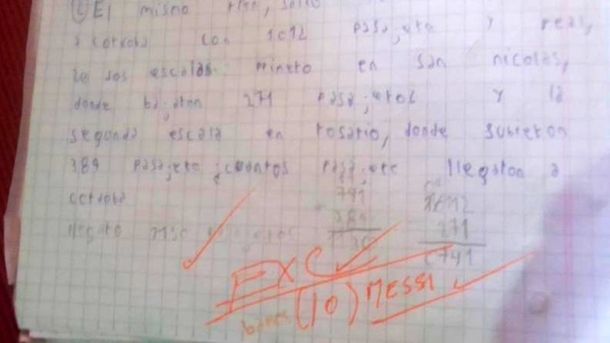 El mismo tren, salio
a cordoba con 1012 pasajete y real,
zo dos escalas. Primero en san nicolas,
donde bajaron 271 pasajeros y la
segunda escala en rosario, donde subieron
389 pasajero ¿cuantos pasajete llegaron a
cordoba
llegaro
741
389
1012
271
0741
EXC
(10) MESSI